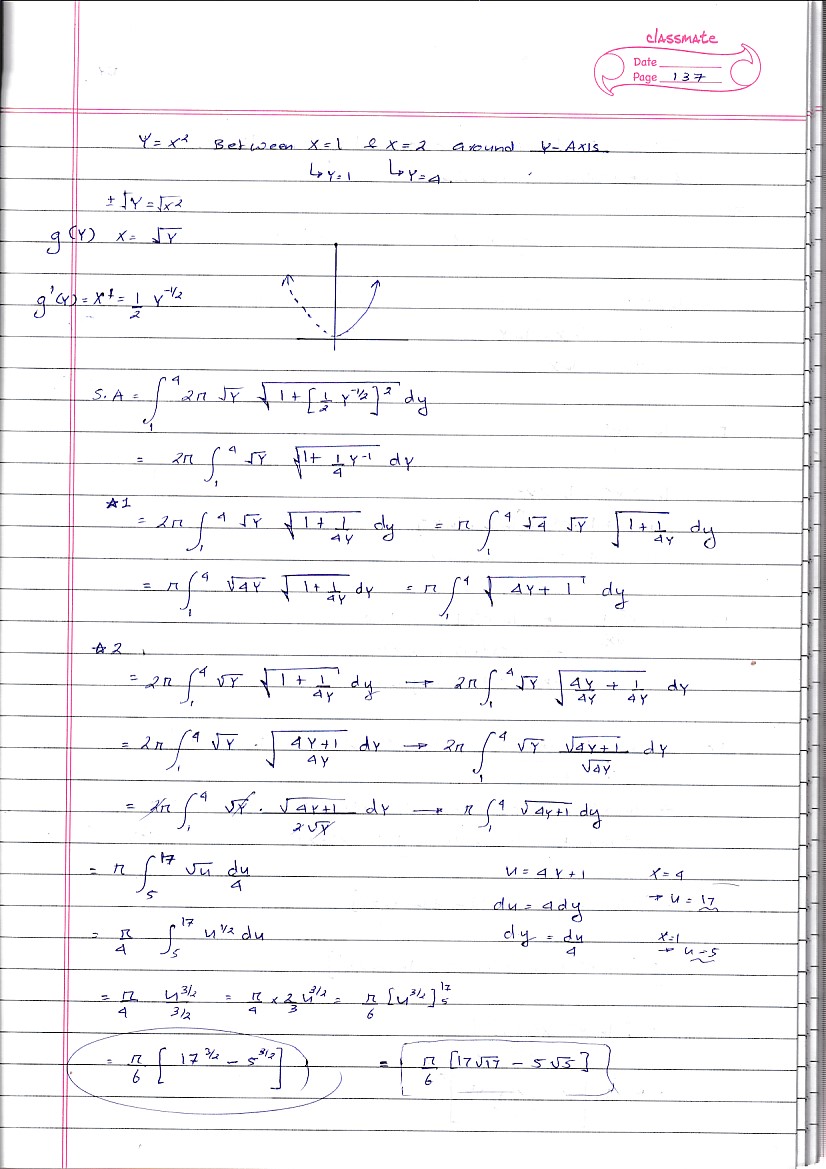 classmate
Date
Page 137
Y = x² Between x=1 & x=2 around Y-Axis.
↳Y=1 ↳Y=4.
± √Y = √x²
g(Y) x = √Y
g'(Y) = x¹ = 1/2 Y^(-1/2)
S.A = ∫₁⁴ 2π √Y √(1 + [1/2 Y^(-1/2)]²) dy
= 2π ∫₁⁴ √Y √(1 + 1/4 Y⁻¹) dY
☆1
= 2π ∫₁⁴ √Y √(1 + 1/4Y) dy = π ∫₁⁴ √4 √Y √(1 + 1/4Y) dy
= π ∫₁⁴ √4Y √(1 + 1/4Y) dY = π ∫₁⁴ √(4Y + 1) dy
☆2
= 2π ∫₁⁴ √Y √(1 + 1/4Y) dy → 2π ∫₁⁴ √Y √(4Y/4Y + 1/4Y) dY
= 2π ∫₁⁴ √Y · √((4Y+1)/4Y) dY → 2π ∫₁⁴ √Y √(4Y+1)/√4Y dY
= 2π ∫₁⁴ √Y · √(4Y+1)/2√Y dY → π ∫₁⁴ √(4Y+1) dy
= π ∫₅¹⁷ √u du/4 u = 4Y+1 x=4
du = 4dy → u = 17
= π/4 ∫₅¹⁷ u^(1/2) du dy = du/4 x=1
→ u=5
= π/4 u^(3/2)/(3/2) = π/4 × 2/3 u^(3/2) = π/6 [u^(3/2)]₅¹⁷
= π/6 [17^(3/2) - 5^(3/2)] = π/6 [17√17 - 5√5]